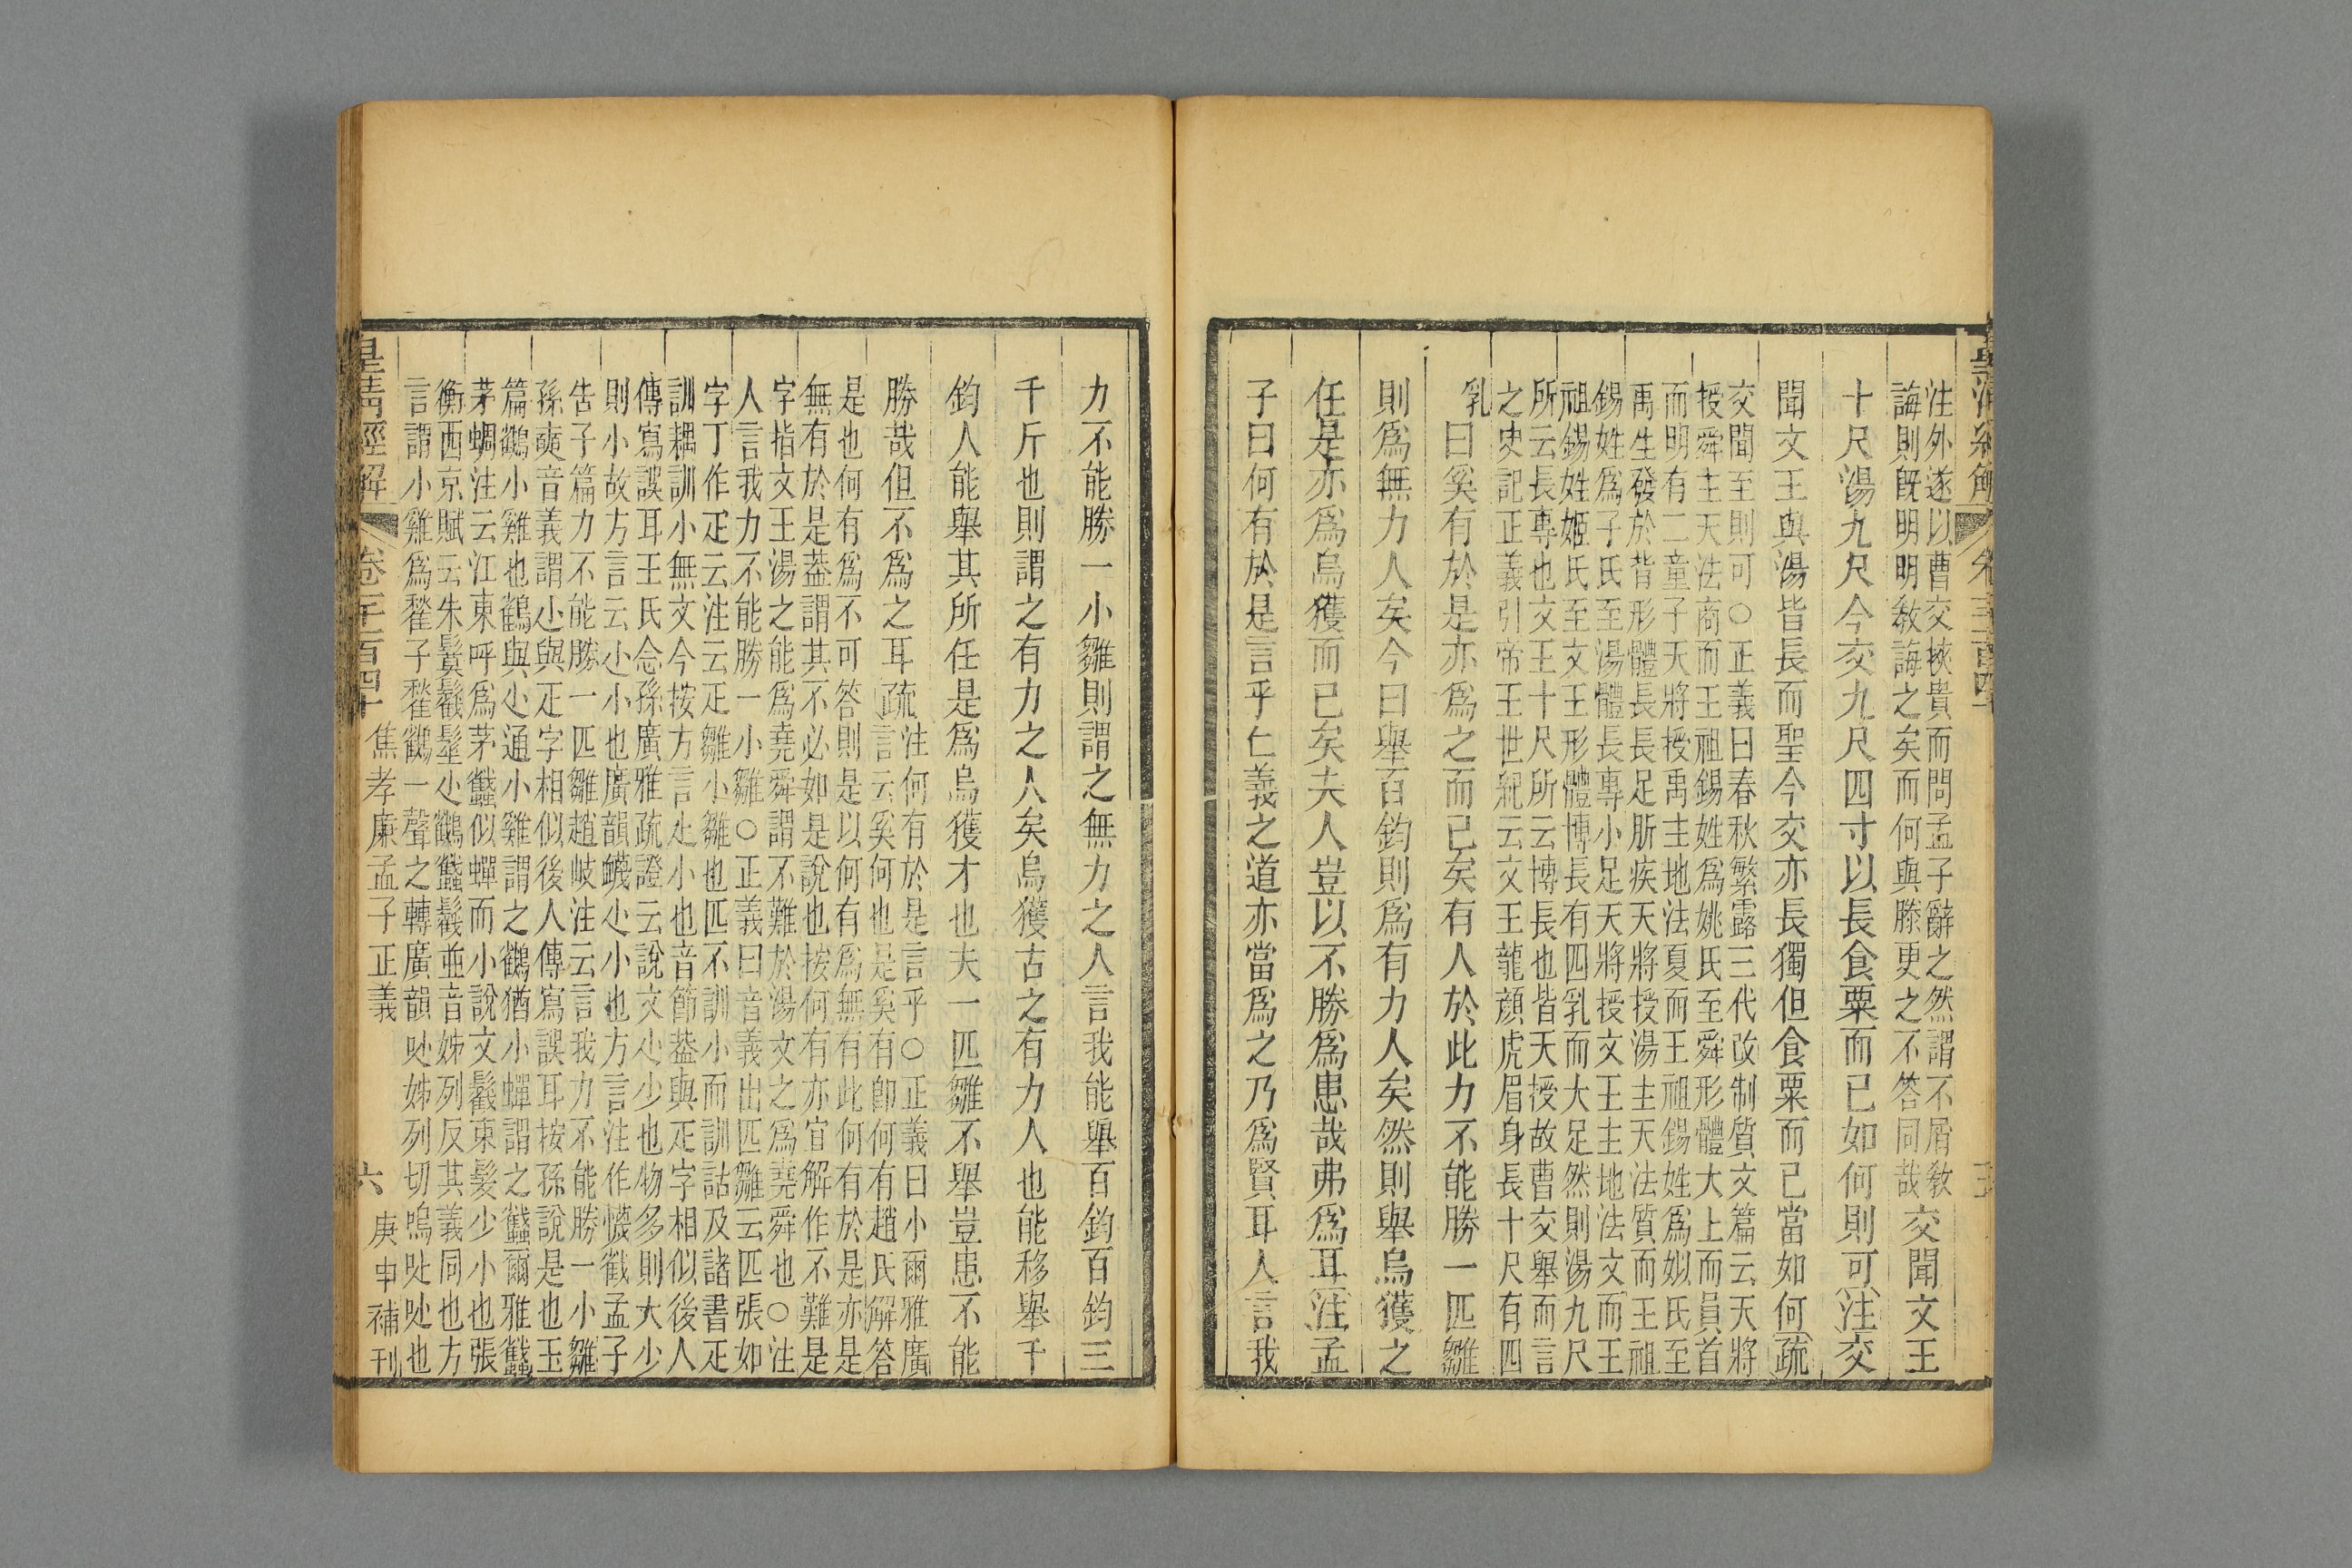 皇清經解
注外遂以曹交挾貴而問孟子辭之然謂不屑教
誨則旣明明教誨之矣而何與滕更之不答同哉
交聞文王
十尺湯九尺今交九尺四寸以長食粟而已如何則可注交
聞文王與湯皆長而聖今交亦長獨但食粟而已當如何疏
交聞至則可○正義曰春秋繁露三代改制質文篇云天將
授舜主天法商而王祖錫姓爲姚氏至舜形體大上而員首
而明有二童子天將授禹主地法夏而王祖錫姓爲姒氏至
禹生發於背形體長長足肵疾天將授湯主天法質而王祖
錫姓爲子氏至湯體長專小足天將授文王主地法文而王
祖錫姓姬氏至文王形體博長有四乳而大足然則湯九尺
所云長專也文王十尺所云博長也皆天授故曹交舉而言
之史記正義引帝王世紀云文王龍顔虎眉身長十尺有四
乳
曰奚有於是亦爲之而已矣有人於此力不能勝一匹雛
則爲無力人矣今曰舉百鈞則爲有力人矣然則舉烏獲之
任是亦爲烏獲而已矣夫人豈以不勝爲患哉弗爲耳注孟
子曰何有於是言乎仁義之道亦當爲之乃爲賢耳人言我
力不能勝一小雛則謂之無力之人言我能舉百鈞百鈞三
千斤也則謂之有力之人矣烏獲古之有力人也能移舉千
鈞人能舉其所任是爲烏獲才也夫一匹雛不舉豈患不能
勝哉但不爲之耳疏
注何有於是言乎○正義曰小爾雅廣
言云奚何也是奚有卽何有趙氏解答
是也何有爲不可答則是以何有爲無有此何有於是亦是
無有於是葢謂其不必如是說也按何有亦宜解作不難是
字指文王湯之能爲堯舜謂不難於湯文之爲堯舜也○注
人言我力不能勝一小雛○正義曰音義出匹雛云匹張如
字丁作疋云注云疋雛小雛也匹不訓小而訓詁及諸書疋
訓耦訓小無文今按方言尐小也音節葢與疋字相似後人
傳寫誤耳王氏念孫廣雅疏證云說文尐少也物多則大少
則小故方言云尐小也廣韻㡜尐小也方言注作懱截孟子
告子篇力不能勝一匹雛趙岐注云言我力不能勝一小雛
孫奭音義謂尐與疋字相似後人傳寫誤耳按孫說是也玉
篇鶛小雞也鶛與尐通小雞謂之鶛猶小蟬謂之蠽爾雅蠽
茅蜩注云江東呼爲茅蠽似蟬而小說文䰖束髮少小也張
衡西京賦云朱鬕䰖髽尐鶛蠽䰖並音姊列反其義同也方
言謂小雞爲䅵子䅵鶛一聲之轉廣韻吵姊列切嗚吵吵也
皇清經解
卷一千一百四十
焦孝廉孟子正義
六
庚申補刊